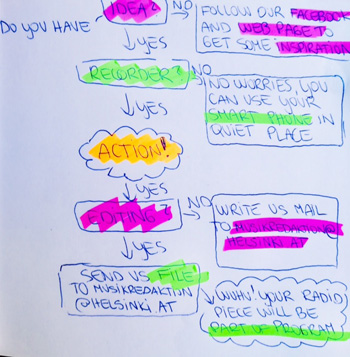 IDEA?
NO
FOLLOW OUR FACEBOOK
AND WEB PAGE TO
GET SOME INSPIRATION
DO YOU HAVE
YES
RECORDER?
NO
NO WORRIES, YOU
CAN USE YOUR
SMART PHONE IN
QUIET PLACE
YES
ACTION!
YES
EDITING?
NO
WRITE US MAIL
TO MUSIKREDAKTION@
HELSINKI.AT
YES
SEND US FILE!
TO MUSIKREDAKTION
@HELSINKI.AT
WUHU! YOUR RADIO
PIECE WILL BE
PART OF PROGRAM